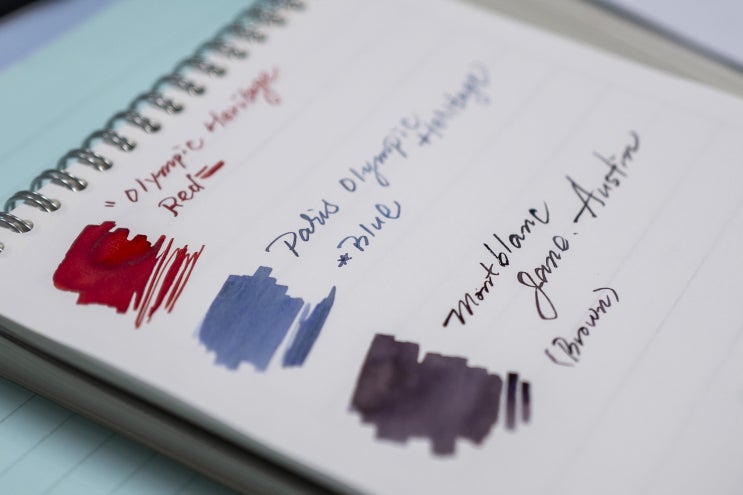 "Olympic Heritage
Red=
Paris Olympic Heritage
*Blue
Montblanc
Jane. Austin
(Brown)